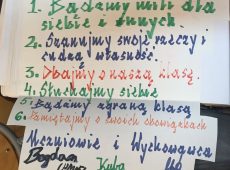 1. Bądźmy mili dla
siebie i innych.
2. Szanujmy swoje rzeczy i
cudzą własność.
3. Dbajmy o naszą klasę.
4. Słuchajmy siebie
5. Bądźmy zgraną klasą
6. Pamiętajmy o swoich obowiązkach
Uczniowie i Wychowawca
Bogdan
Kuba